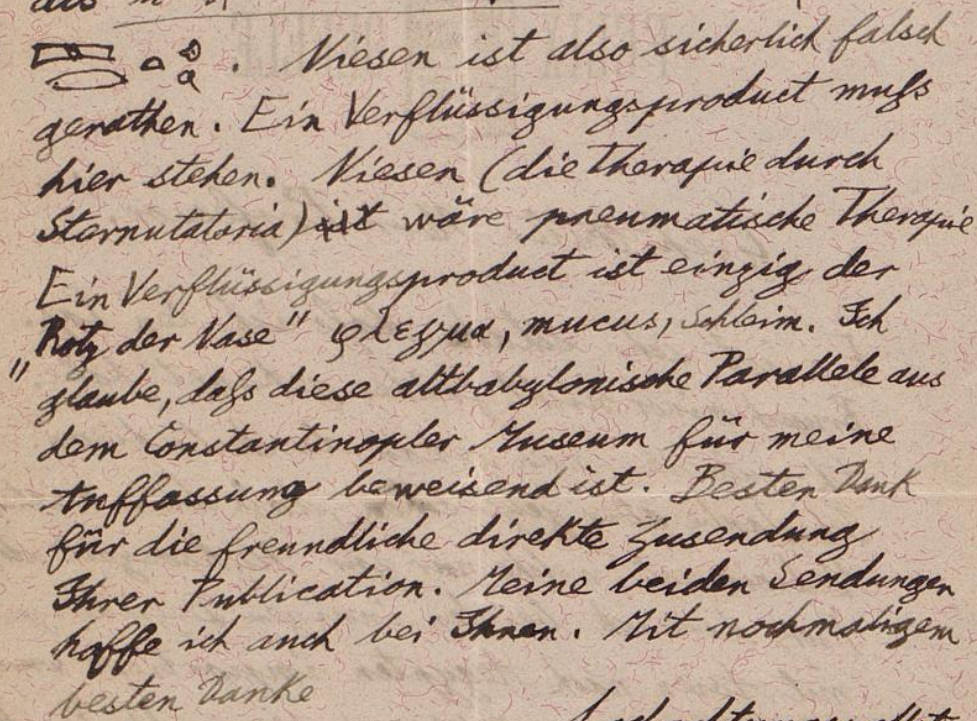 . Niesen ist also sicherlich falsch
gerathen. Ein Verflüssigungsproduct muſs
hier stehen. Niesen (die Therapie durch
Sternutatoria) ist wäre pneumatische Therapie
Ein Verflüssigungsproduct ist einzig der
„Rotz der Nase" φλεγμα, mucus, Schleim. Ich
glaube, daſs diese altbabylonische Parallele aus
dem Constantinopler Museum für meine
Auffassung beweisend ist. Besten Dank
für die freundliche direkte Zusendung
Ihrer Publication. Meine beiden Sendungen
hoffe ich auch bei Ihnen. Mit nochmaligem
besten Danke